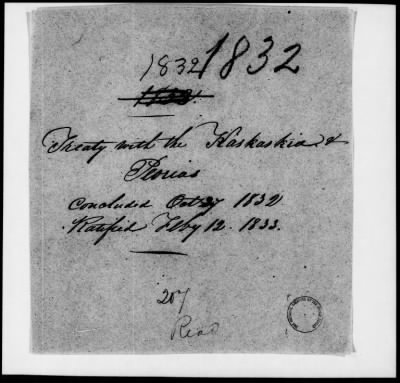 1832 1832
1832.
Treaty with the Kaskaskia &
Peorias
Concluded Oct 27 1832
Ratified Feby 12. 1833.
207
Read